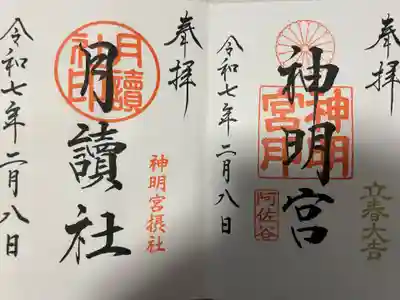 奉拝
神明宮
神明宮印
阿佐谷
立春大吉
令和七年二月八日
奉拝
月讀社
月讀社印
神明宮摂社
令和七年二月八日